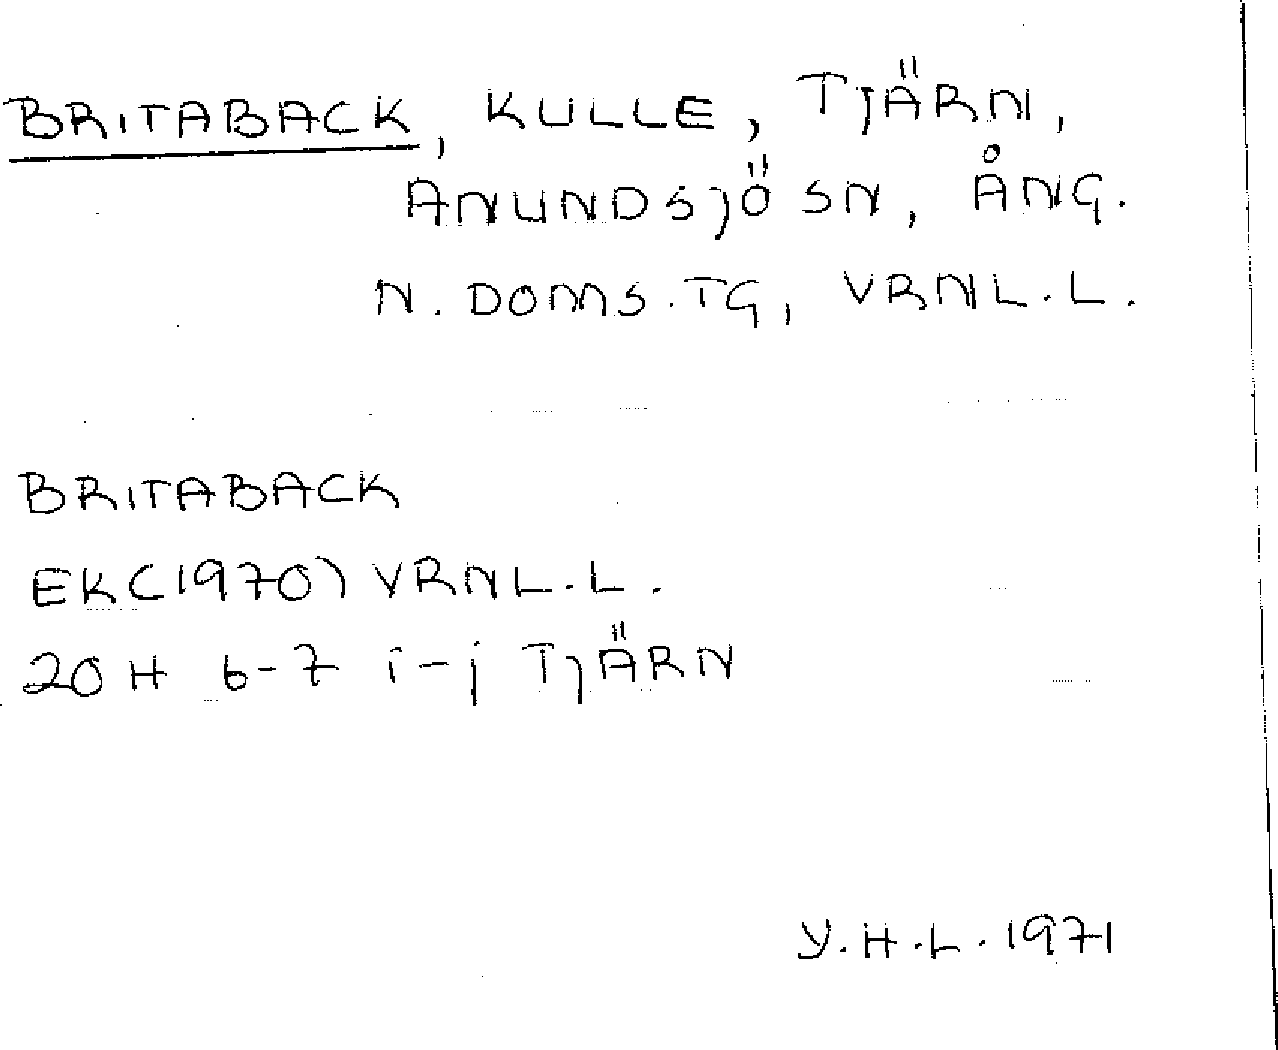 BRITABACK, KULLE, TJÄRN,
ANUNDSJÖ SN, ÅNG.
N. DOMS.TG, VRNL.L.
BRITABACK
EK(1970) VRNL.L.
20H 6-7 i-j TJÄRN
Y.H.L. 1971